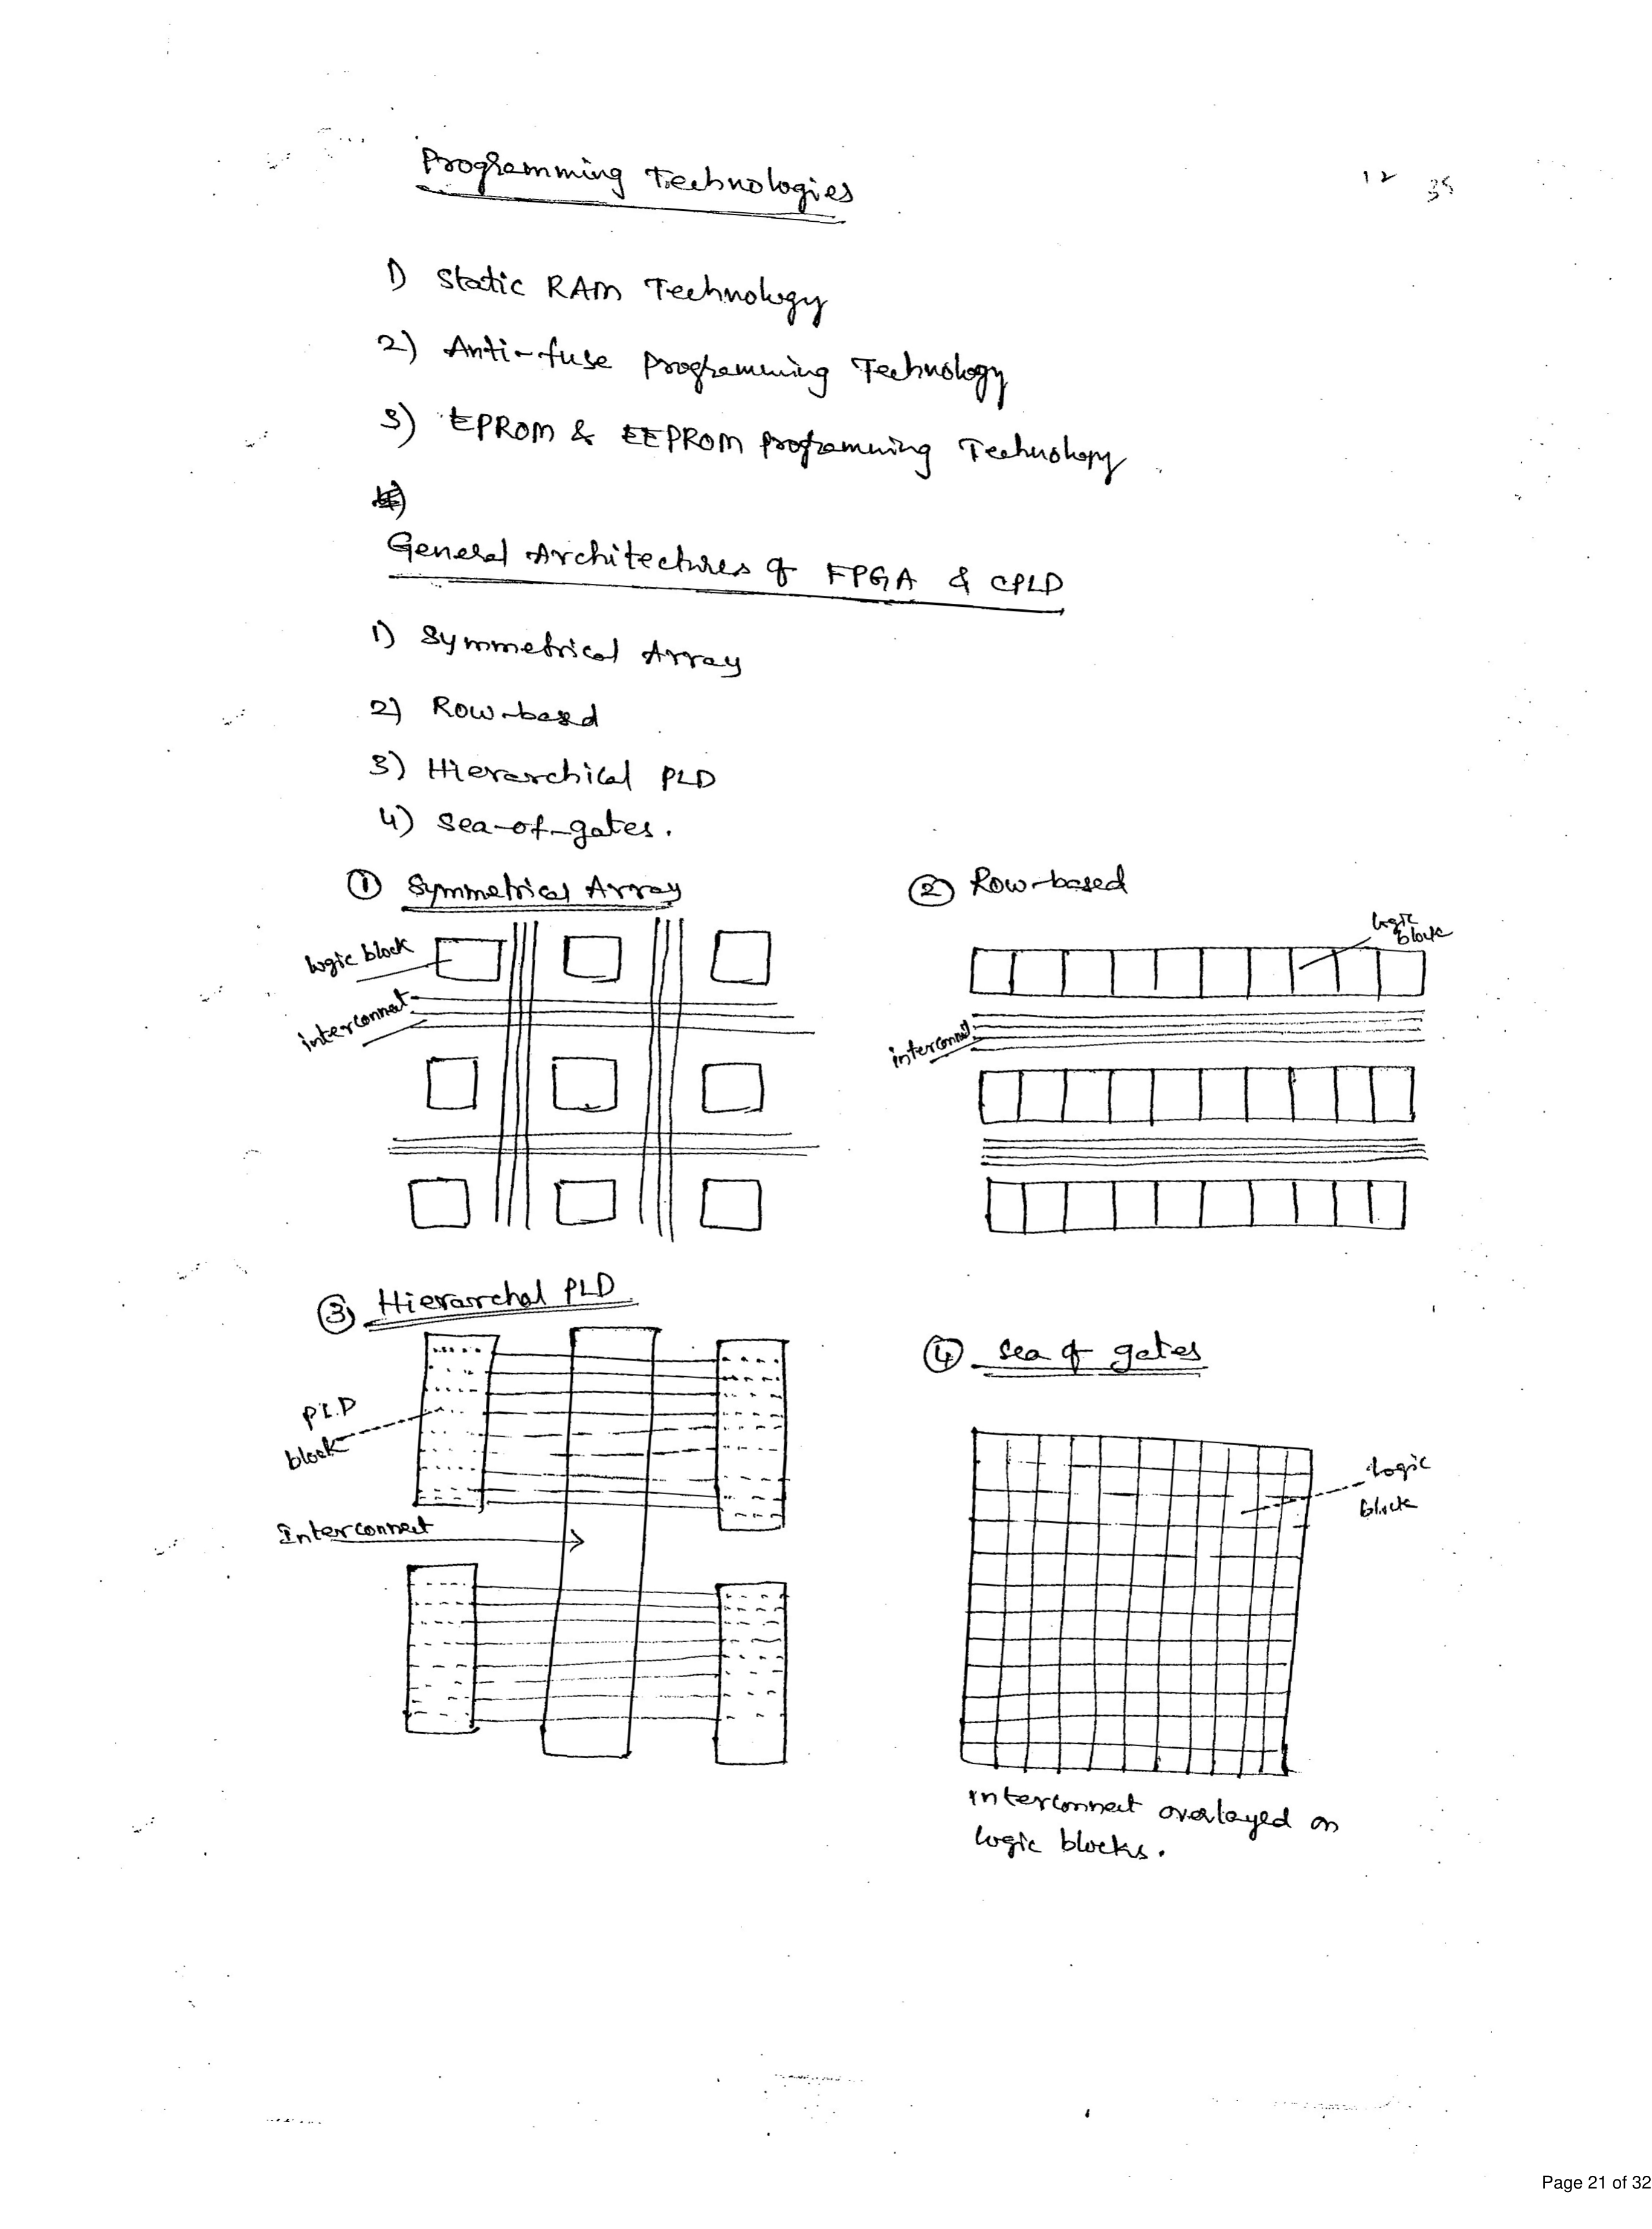 Programming Technologies
12 35
1) Static RAM Technology
2) Anti-fuse Programming Technology
3) EPROM & EEPROM programming Technology
General Architectures of FPGA & CPLD
1) Symmetrical Array
2) Row-based
3) Hierarchical PLD
4) Sea-of-gates.
① Symmetrical Array
logic block
interconnect
② Row-based
logic
block
interconnect
③ Hierarchal PLD
PLD
block
Interconnect
④ Sea of gates
logic
block
interconnect overlayed on
logic blocks.
Page 21 of 32